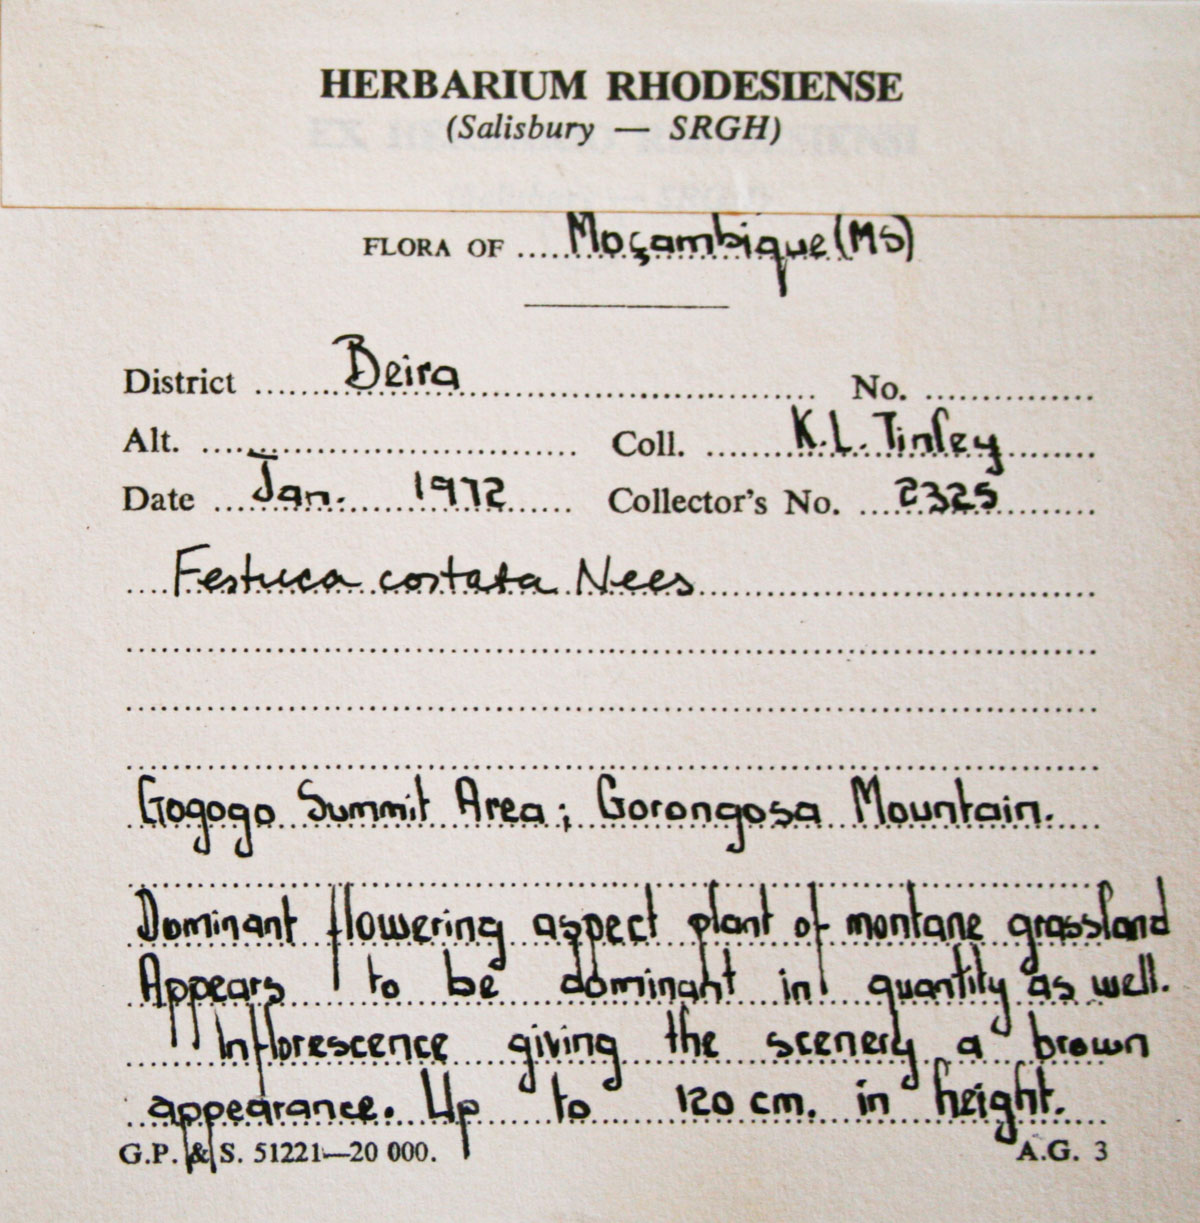 HERBARIUM RHODESIENSE
(Salisbury — SRGH)
FLORA OF .... Moçambique (MS)
District .... Beira .... No. ....
Alt. .... Coll. .... K.L. Tinley
Date .... Jan. 1972 .... Collector's No. .... 2325
Festuca costata Nees
Gogogo Summit Area; Gorongosa Mountain.
Dominant flowering aspect plant of montane grassland
Appears to be dominant in quantity as well.
Inflorescence giving the scenery a brown
appearance. Up to 120 cm. in height.
G.P. & S. 51221—20 000. A.G. 3